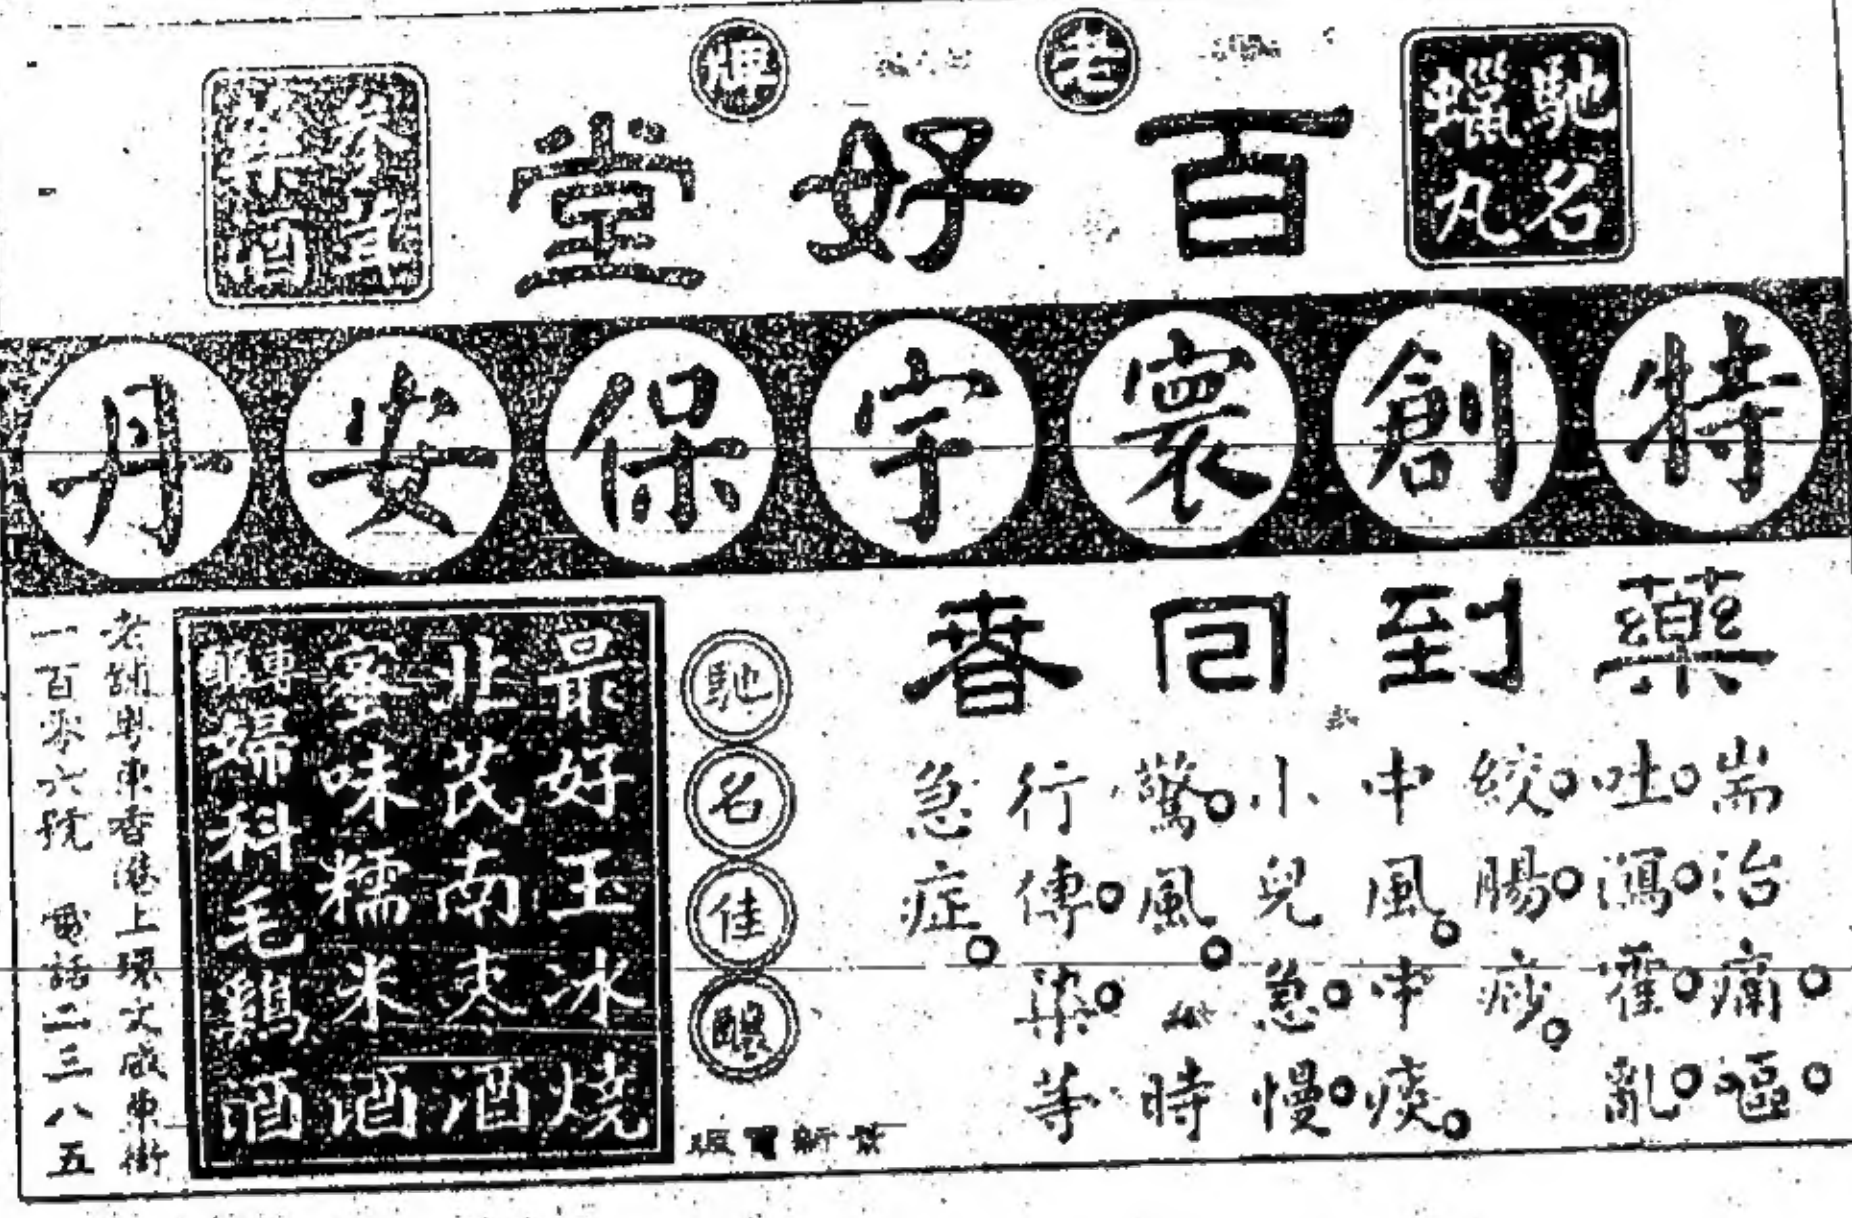 馳名
蠟丸
老牌
百好堂
參茸
藥酒
特創寰宇保安丹
藥到回春
耑治痛。嘔。
吐。瀉。霍。亂。
絞。腸。痧。
中風。中痰。
小兒急。慢。
驚。風。時
行傳。染。等
急症。
馳名佳釀
最好玉冰燒
北芪南棗酒
蜜味糯米酒
婦科毛鷄酒
老舖粵東香港上環文咸東街
一百零六號 電話三三八五